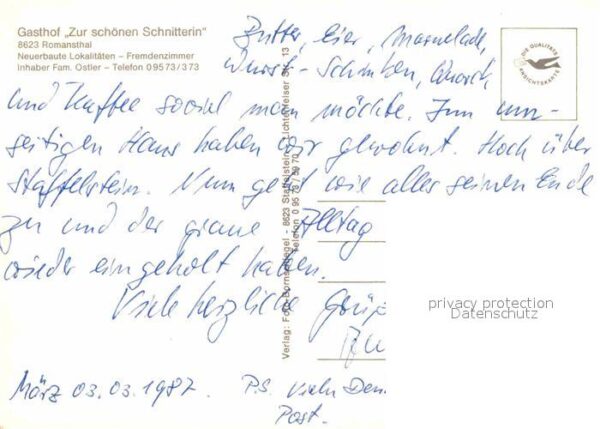 Gasthof „Zur schönen Schnitterin"
8623 Romansthal
Neuerbaute Lokalitäten – Fremdenzimmer
Inhaber Fam. Ostler – Telefon 0 95 73 / 3 73
Butter, Eier, Marmelade,
Wurst-Schinken, Quark
und Kaffee soviel man möchte. Im um-
seitigen Haus haben wir gewohnt. Hoch über
Staffelstein. Nun geht wie alles seinem Ende
zu und der graue Alltag
wieder eingeholt haben.
Viele herzliche Grüß
März 03.03.1987. P.S. Vielen Dan
Post.
Verlag: Foto-Bornschlegel - 8623 Staffelstein, Lichtenfelser Str. 13
Telefon 0 95 73 / 59 70
DIE QUALITÄTS
ANSICHTSKARTE
privacy protection
Datenschutz